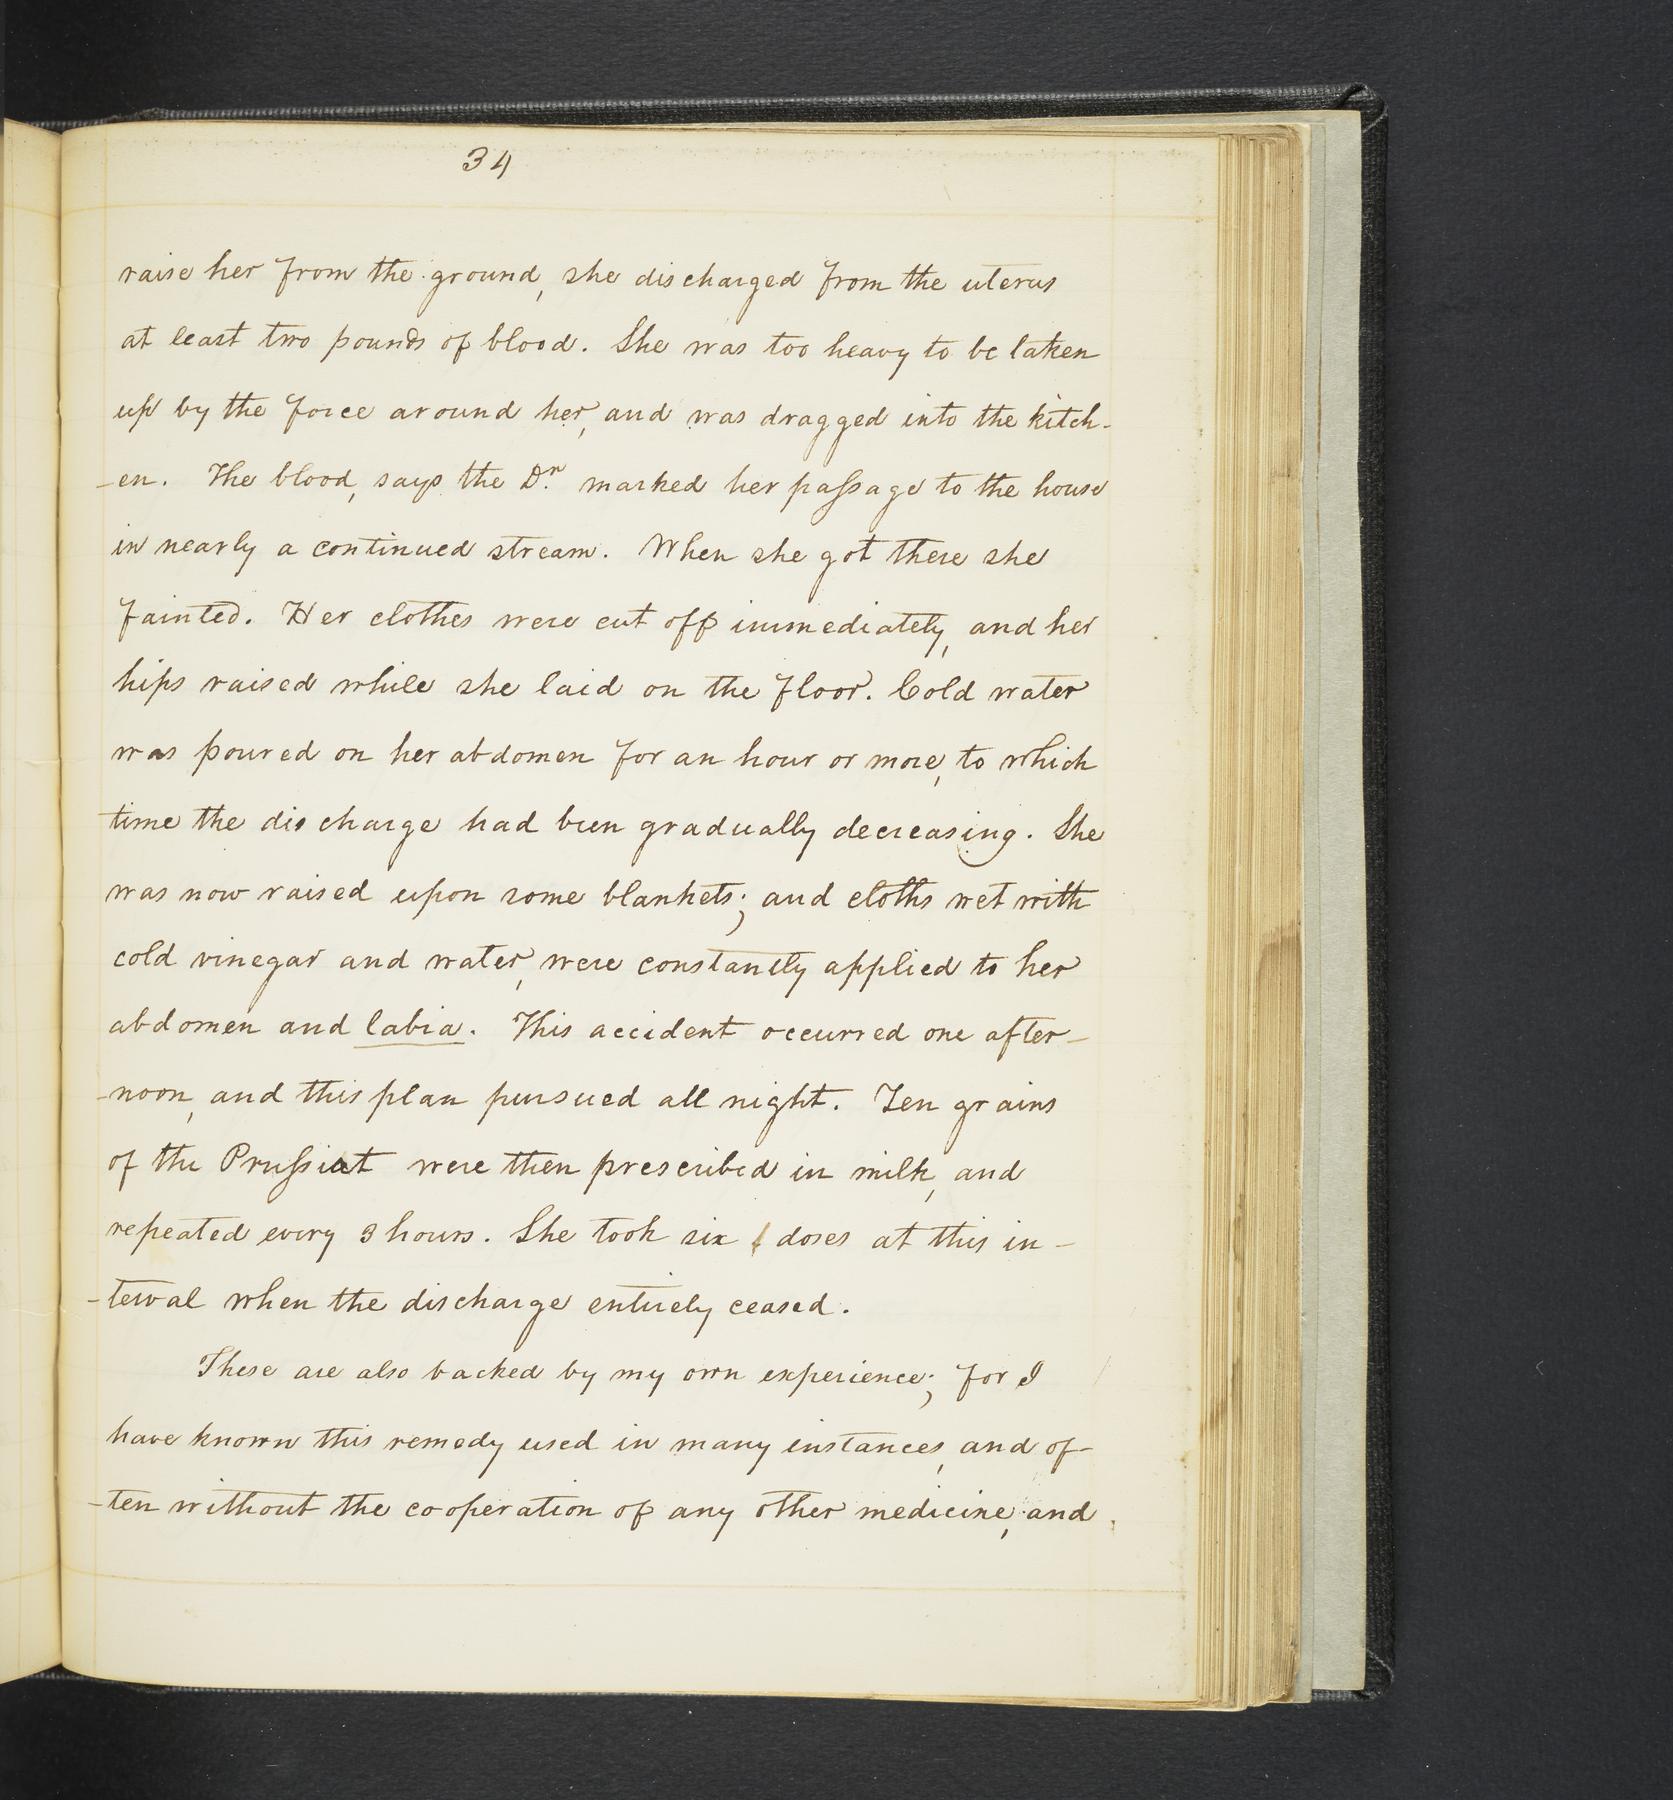 34
raise her from the ground, she discharged from the uterus
at least two pounds of blood. She was too heavy to be taken
up by the force around her, and was dragged into the kitch-
-en. The blood, says the Dr. marked her passage to the house
in nearly a continued stream. When she got there she
fainted. Her clothes were cut off immediately, and her
hips raised while she laid on the floor. Cold water
was poured on her abdomen for an hour or more, to which
time the discharge had been gradually decreasing. She
was now raised upon some blankets; and cloths wet with
cold vinegar and water, were constantly applied to her
abdomen and labia. This accident occurred one after-
-noon, and this plan pursued all night. Ten grains
of the Prussiat were then prescribed in milk, and
repeated every 3 hours. She took six doses at this in-
-terval when the discharge entirely ceased.
These are also backed by my own experience; for I
have known this remedy used in many instances, and of-
-ten without the cooperation of any other medicine, and